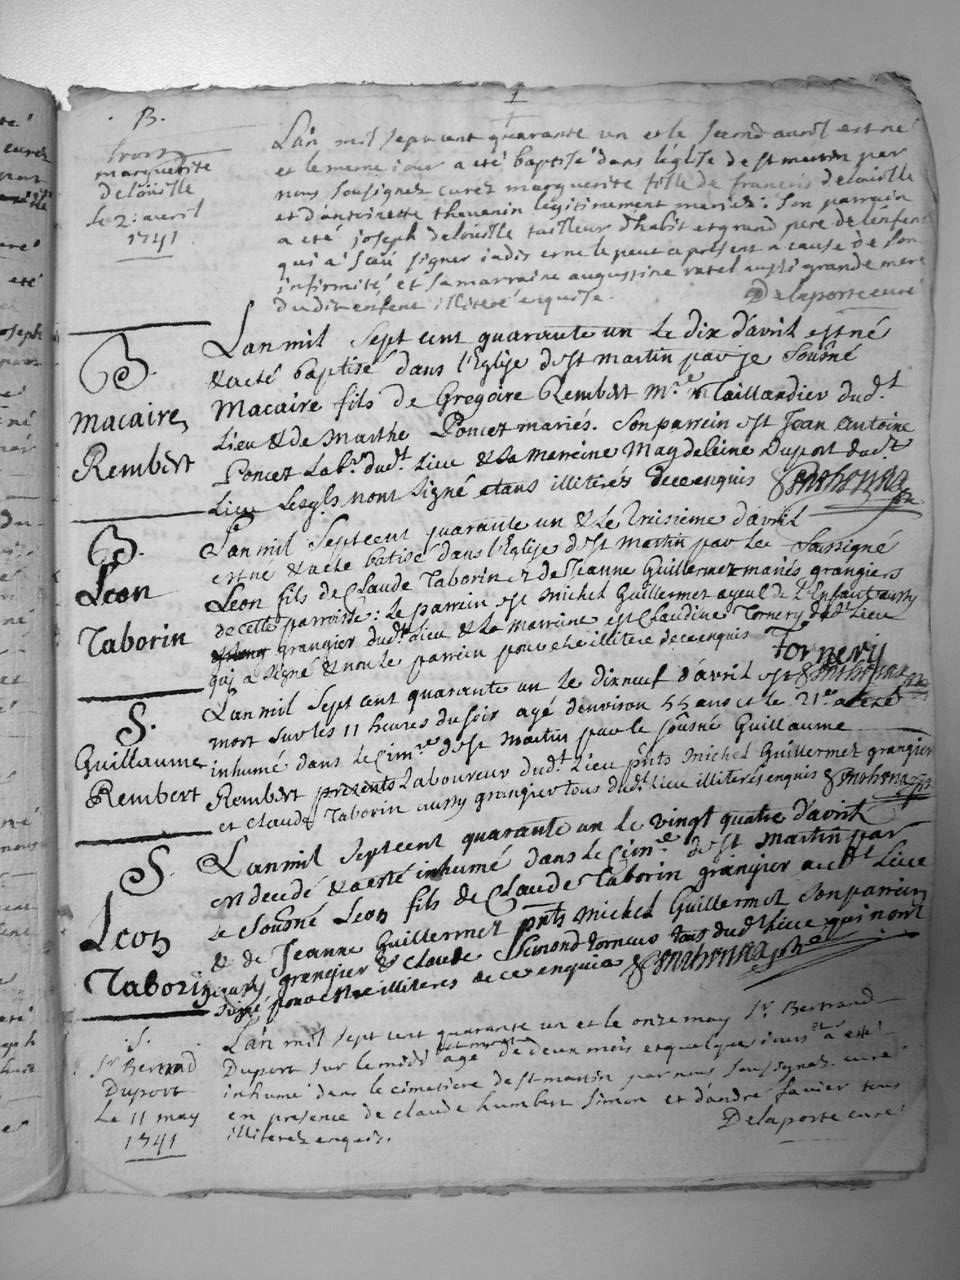 B.
marguerite
Delouille
Le 2: avril
1741
L'an mil sept cent quarante un et le second avril est né
et le meme iour a eté baptisé dans l'eglise de st martin par
nous soussignez curez marguerite fille de francois delouille
et d'antoinette thevenin legitimement mariez: son parrain
a eté joseph delouille tailleur d'habit et grand pere de l'enfant
qui a sceu signer iadis et ne le peut a present a cause de son
infirmité, et sa marraine augustine ratel aussi grande mere
du dit enfent illiteré enquise.
Delaporte curé
B.
Macaire
Rembert
Lan mil sept cent quarante un le dix d'avril est né
& a eté baptisé dans l'Eglise de st martin par je sousné
Macaire fils de Gregoire Rembert Mre Taillandier dud.t
Lieu & de Marthe Poncet mariés. Son parrein est Jean Antoine
Poncet Labr dud.t Lieu & Sa Merreine Magdeleine Duport dud.t
Lieu Lesqls nont signé etans illiterés de ce enquis
B.
Leon
Taborin
Lan mil sept cent quarante un & Le truisieme d'avril
est né & a eté batisé dans l'Eglise de st martin par Le Soussigné
Leon fils de Claude Taborin & de Jeanne Guillermet mariés grangiers
de cette parroisse: Le parrein est Michel Guillermet ayeul de l'Enfant aussy
grangier dud.t Lieu & La Marreine est Claudine Tornery dud.t Lieu
qui a signé & non le parrein pour etre illitere de ce enquis
Tornery
S.
Guillaume
Rembert
Lan mil sept cent quarante un le dix neuf d'avril est
mort sur les 11 heures du soir agé d'environ 55 ans et le 21.e a eté
inhumé dans le Cim.re de st Martin par le sousné Guillaume
Rembert Laboureur dud.t Lieu pnts Michel Guillermet grangier
et Claude Taborin aussy grangier tous dud.t Lieu illiterés enquis
S.
Leon
Taborin
Lan mil sept cent quarante un le vingt quatre d'avril
est decedé & a eté inhumé dans le Cim.re de st Martin par
le Sousné Leon fils de Claude Taborin grangier aud.t Lieu
& de Jeanne Guillermet pnts Michel Guillermet Son parrein
aussy grangier & Claude Simond tous dud.t Lieu qui n'ont
signé pour etre illiteres de ce enquis
S.
Sr Bertrand
Duport
Le 11 may
1741
L'an mil sept cent quarante un et le onze may Sr Bertrand
Duport sur le midi agé de deux mois et quelque iours a eté
inhumé dans le cimetiere de st martin par nous soussignez curé
en presence de claude humbert simon et d'andre favier tous
illiterez enquis.
Delaporte curé